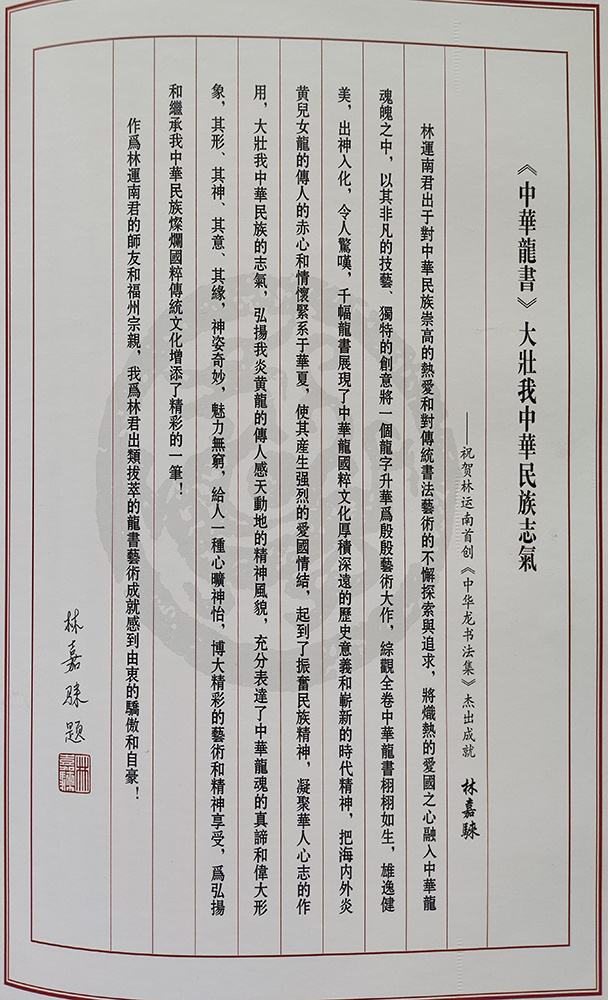 《中華龍書》大壯我中華民族志氣
——祝贺林运南首创《中华龙书法集》杰出成就 林嘉騋
林運南君出于對中華民族崇高的熱愛和對傳統書法藝術的不懈探索與追求，將熾熱的愛國之心融入中華龍
魂魄之中，以其非凡的技藝、獨特的創意將一個龍字升華爲殷殷藝術大作，綜觀全卷中華龍書栩栩如生，雄逸健
美，出神入化，令人驚嘆，千幅龍書展現了中華龍國粹文化厚積深遠的歷史意義和嶄新的時代精神，把海内外炎
黄兒女龍的傳人的赤心和情懷緊系于華夏，使其産生强烈的愛國情結，起到了振奮民族精神，凝聚華人心志的作
用，大壯我中華民族的志氣，弘揚我炎黄龍的傳人感天動地的精神風貌，充分表達了中華龍魂的真諦和偉大形
象，其形、其神、其意、其緣，神姿奇妙，魅力無窮，給人一種心曠神怡，博大精彩的藝術和精神享受，爲弘揚
和繼承我中華民族燦爛國粹傳統文化增添了精彩的一筆！
作爲林運南君的師友和福州宗親，我爲林君出類拔萃的龍書藝術成就感到由衷的驕傲和自豪！
林嘉騋題